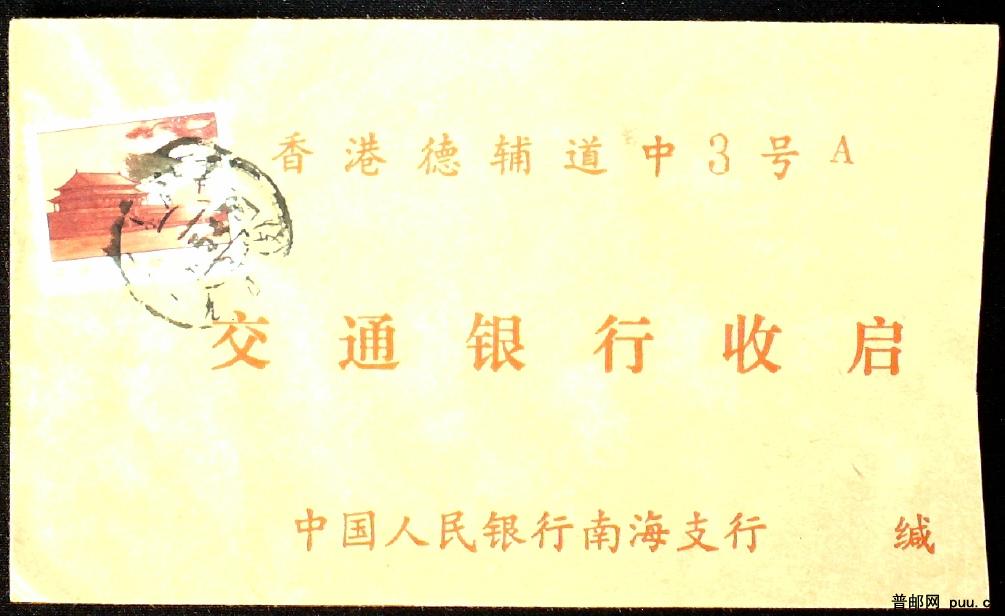 香港德辅道中3号A
交通银行收启
中国人民银行南海支行 缄
普邮网 puu.c